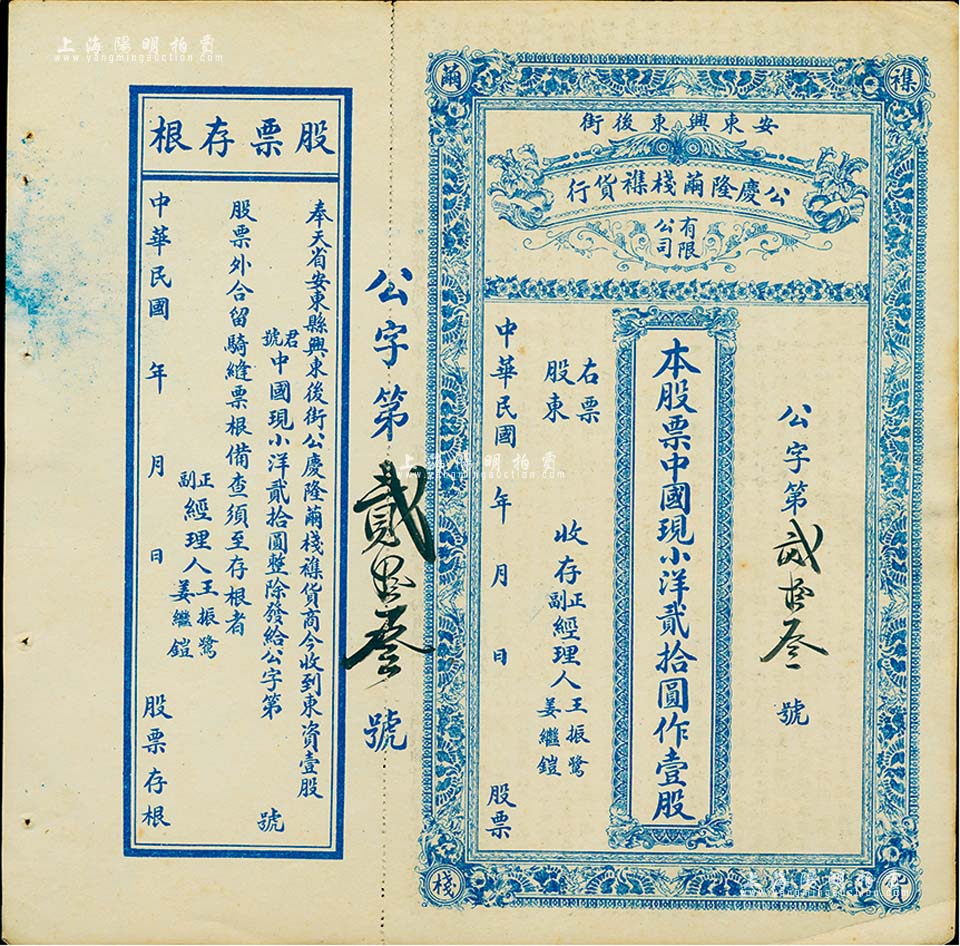 上海陽明拍賣
www.yangmingauction.com
繭
襍
棧
貨
安東興東後街
公慶隆繭棧襍貨行
有限公司
公字第貳拾叁號
本股票中國現小洋貳拾圓作壹股
右票
股東
收存
正副經理人王振鷺姜繼鎧
中華民國 年 月 日 股票
公字第貳拾叁號
股票存根
奉天省安東縣興東後街公慶隆繭棧襍貨商今收到東資壹股
君號中國現小洋貳拾圓整除發給公字第 號
股票外合留騎縫票根備查須至存根者
正副經理人王振鷺姜繼鎧
中華民國 年 月 日 股票存根
上海陽明拍賣
www.yangmingauction.com
上海陽明拍賣
www.yangmingauction.com